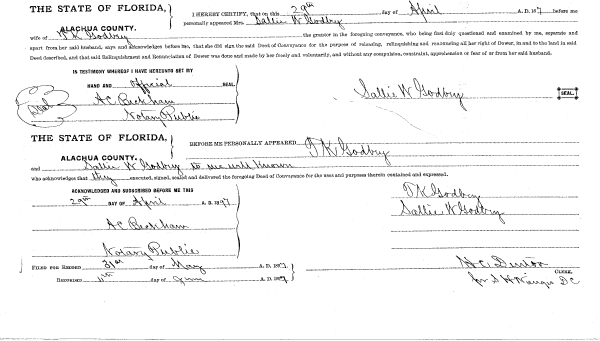 THE STATE OF FLORIDA,
ALACHUA COUNTY.
I HEREBY CERTIFY, that on this 29th day of April A. D. 1897 before me
personally appeared Mrs. Sallie W Godbry
wife of T K Godbry the grantor in the foregoing conveyance, who being first duly questioned and examined by me, separate and
apart from her said husband, says and acknowledges before me, that she did sign the said Deed of Conveyance for the purpose of releasing, relinquishing and renouncing all her right of Dower, in and to the land in said
Deed described, and that said Relinquishment and Renunciation of Dower was done and made by her freely and voluntarily, and without any compulsion, constraint, apprehension or fear of or from her said husband.
IN TESTIMONY WHEREOF I HAVE HEREUNTO SET MY
HAND AND official SEAL
Seal
A C Beckham
Notary Public
Sallie W Godbry SEAL.
THE STATE OF FLORIDA,
ALACHUA COUNTY.
BEFORE ME PERSONALLY APPEARED T K Godbry
and Sallie W Godbry to me well known
who acknowledges that they executed, signed, sealed and delivered the foregoing Deed of Conveyance for the uses and purposes therein contained and expressed.
ACKNOWLEDGED AND SUBSCRIBED BEFORE ME THIS
29th DAY OF April A. D. 1897
A C Beckham
Notary Public
T K Godbry
Sallie W Godbry
FILED FOR RECORD 31st day of May A. D. 1897
RECORDED 11th day of June A. D. 1897
H C Denton
CLERK.
for S H Wienges D C